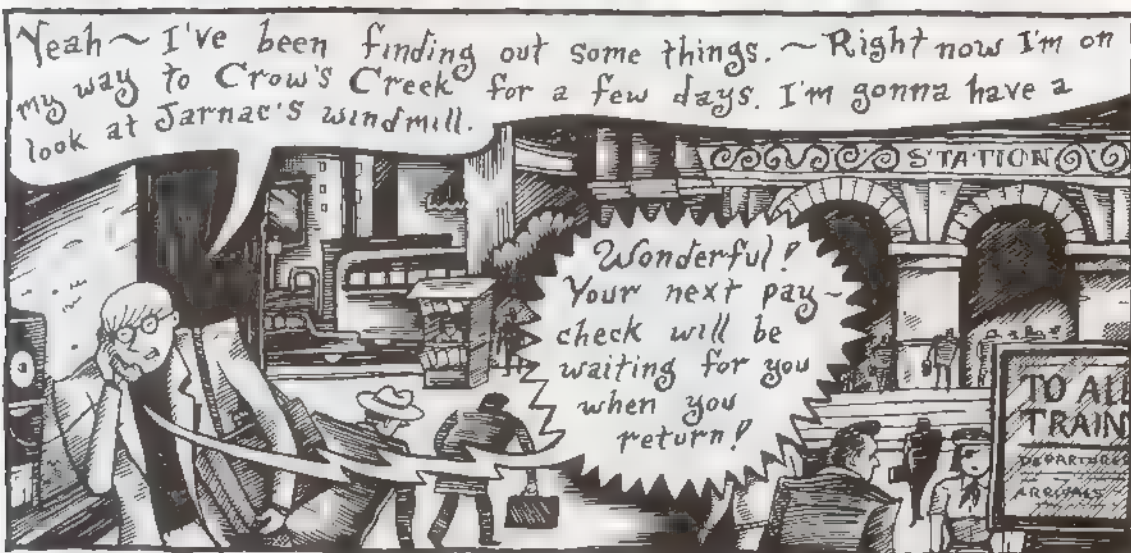 Yeah~ I've been finding out some things. ~ Right now I'm on
my way to Crow's Creek for a few days. I'm gonna have a
look at Jarnac's windmill.
STATION
Wonderful!
Your next pay-
check will be
waiting for you
when you
return!
TO ALL
TRAIN
DEPARTURES
ARRIVALS